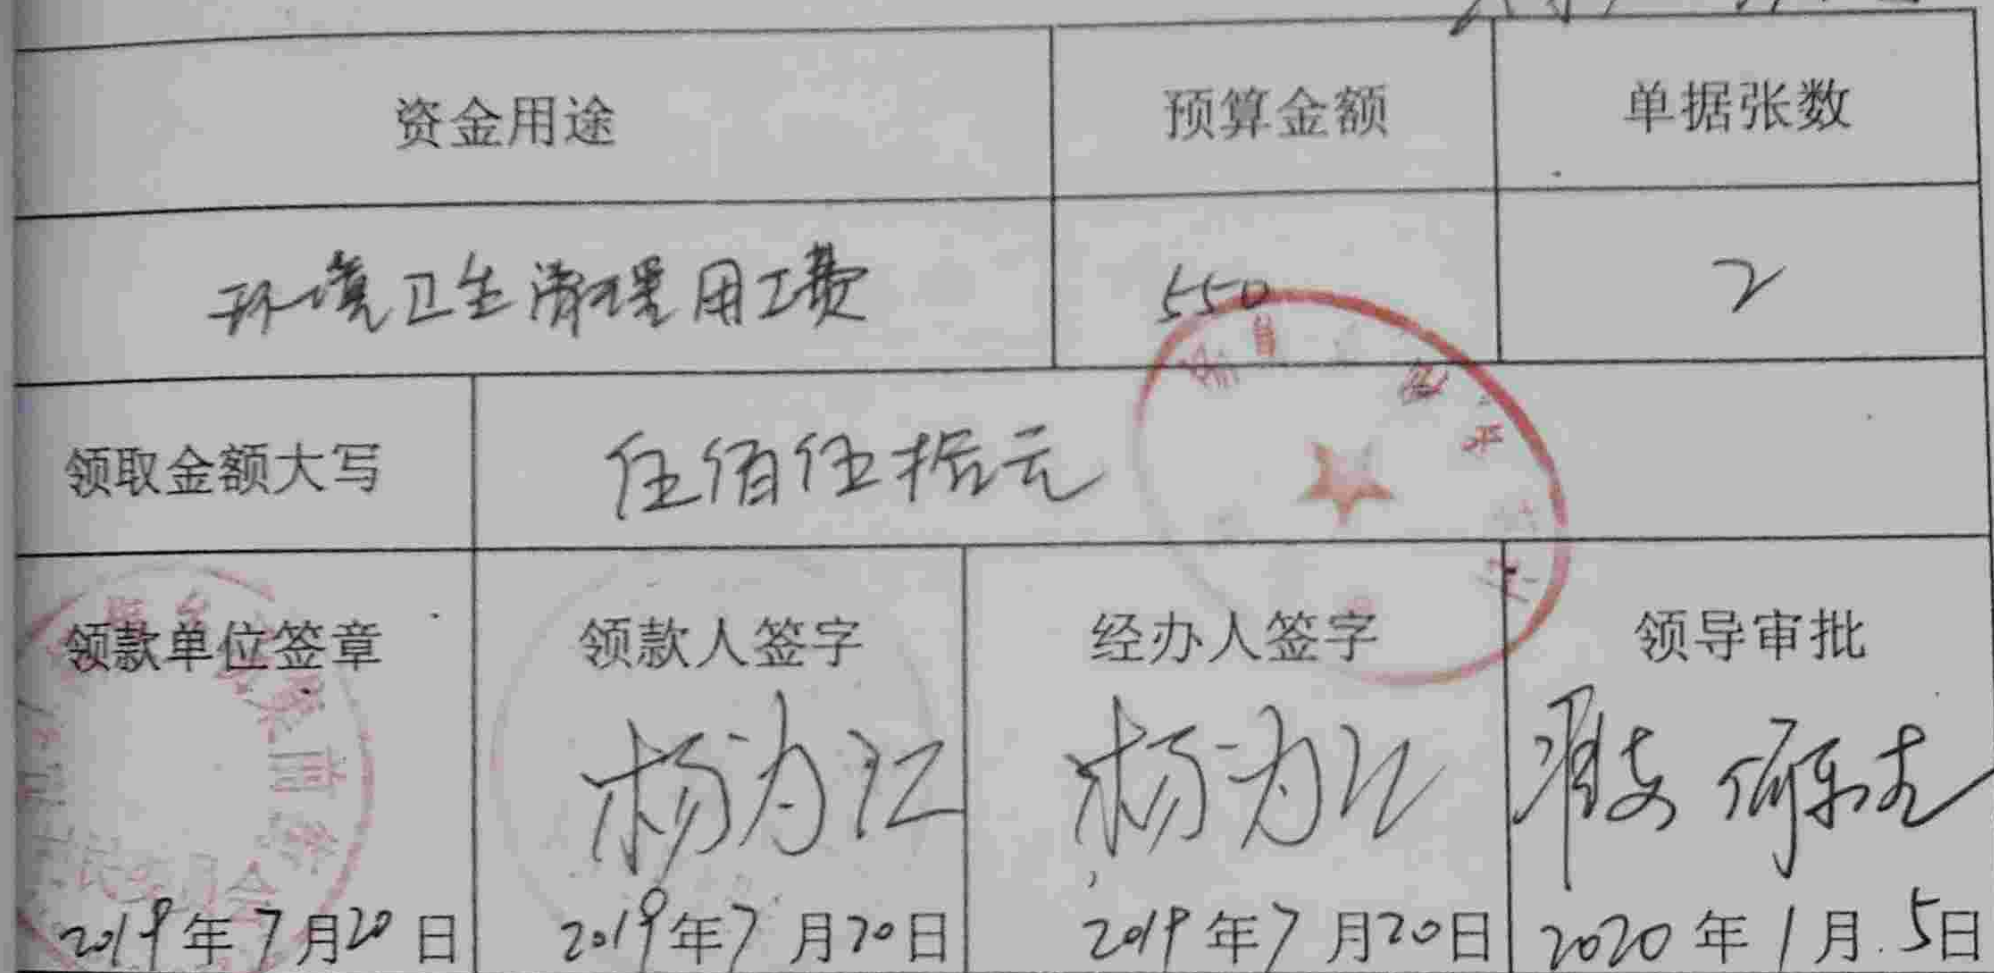 资金用途 预算金额 单据张数
环境卫生清理用工费 550 2
领取金额大写 伍佰伍拾元
领款单位签章 领款人签字 经办人签字 领导审批
杨为江 杨为江
2019年7月20日 2019年7月20日 2019年7月20日 2020年1月5日